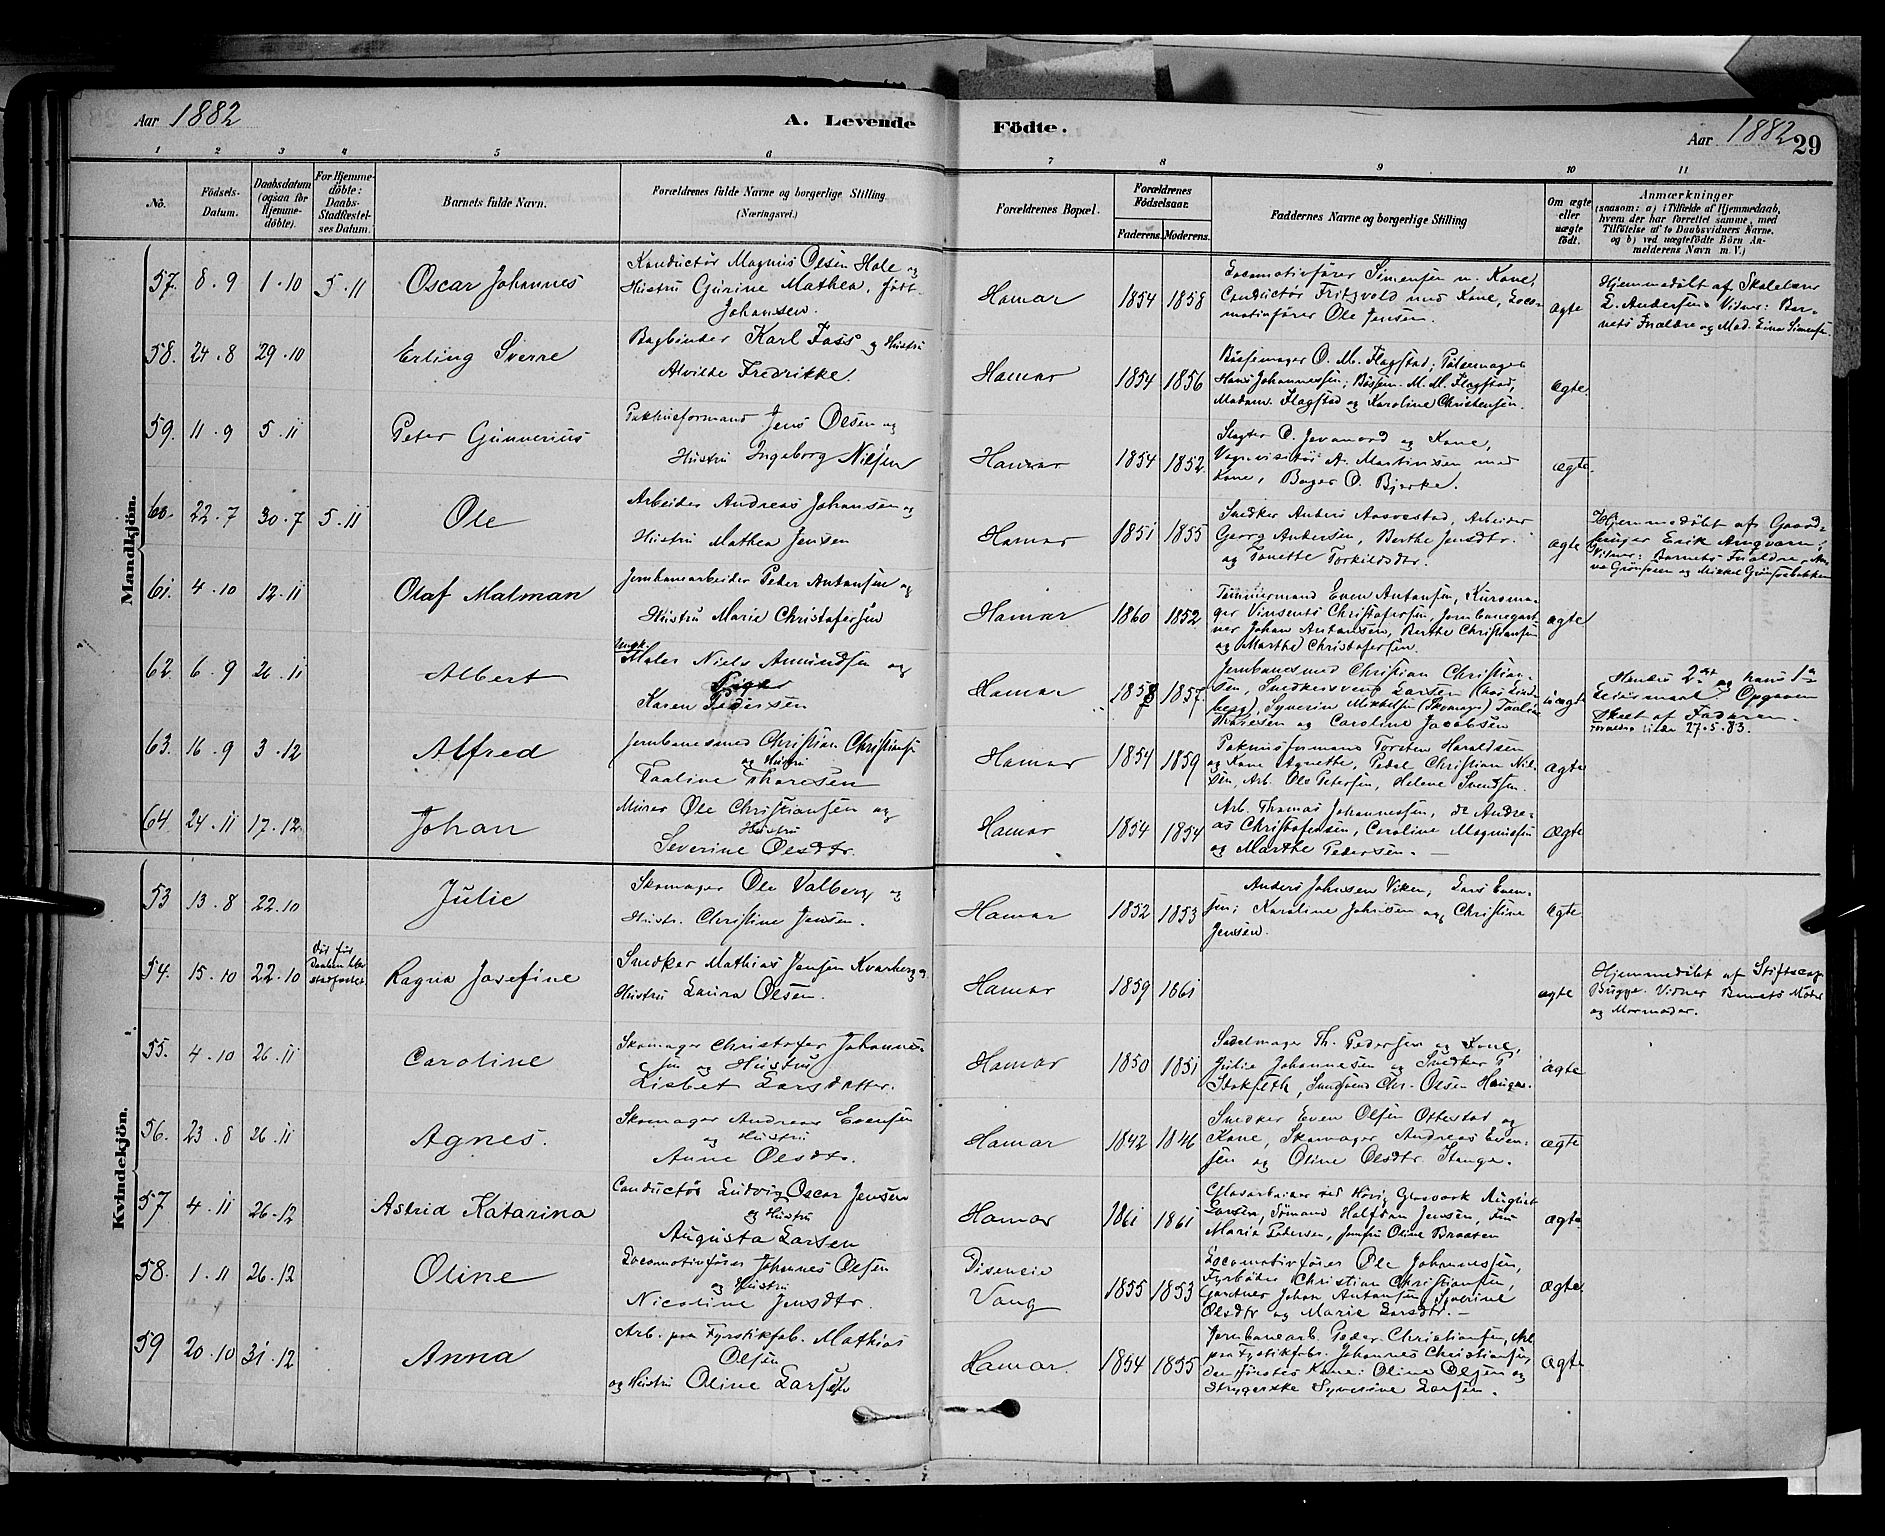 Aar 1882
A. Levende
Födte.
Aar 1882
29
1 2 3 4 5 6 7 8 9 10 11
No.
Födsels-
Datum.
Daabsdatum
(ogsaa for
Hjemme-
döbte).
For Hjemme-
döbte:
Daabs-
Stadfæstel-
ses Datum.
Barnets fulde Navn.
Forældrenes fulde Navne og borgerlige Stilling
(Næringsvei.)
Forældrenes Bopæl.
Forældrenes
Födselsaar.
Faderens. Moderens.
Faddernes Navne og borgerlige Stilling
Om ægte
eller
uægte
födt.
Anmærkninger
(saasom: a) i Tilfælde af Hjemmedaab,
hvem der har forrettet samme, med
Tilföielse af to Daabsvidners Navne,
og b) ved uægtefödte Börn An-
melderens Navn m. V.)
Mandkjön.
57. 8.9 1.10 5.11 Oscar Johannes
Konductør Magnus Olsen Hole og
Hustru Gurine Mathea, født
Johansen.
Hamar 1854 1858
Locomotivfører Simensen m. Kone,
Conductør Fritzvold med Kone, Loco-
motivfører Ole Jensen.
ægte
Hjemmedøbt af Skolelærer
L. Andersen. Vidner: Bar-
nets Forældre og Mad. Simensen
58. 24.8 29.10 Erling Sverre
Bogbinder Karl Foss og Hustru
Alvilde Fredrikke.
Hamar 1854 1856
Bøssemager O. M. Flagstad; Pølsemager
Hans Johannessen; Bøssem. M. M. Flagstad,
Madam Flagstad og Karoline Christensen.
ægte
59. 11.9 5.11 Peter Gunnerius
Pakhusformand Jens Olsen og
Hustru Ingeborg Nilsen
Hamar 1854 1852
Slagter O. og Kone,
Vognvisitør A. Martinsen med
Kone, Bager O. Bjerke.
ægte
60. 22.7 30.7 5.11 Ole
Arbeider Andreas Johansen og
Hustru Mathea Jensen
Hamar 1851 1855
Snedker Anders Aasvestad, Arbeider
Georg Andersen, Berthe Jensdtr.
og Tonette Torkildsdtr.
ægte
Hjemmedøbt af Gaard-
bruger Erik
Vidner: Barnets Forældre,
og Mikkel
61. 4.10 12.11 Olaf Malman
Jernbanearbeider Peder Antonsen og
Hustru Marie Christofersen
Hamar 1860 1852
Tømmermand Even Antonsen, Kurvma-
ger Vinsents Christofersen, Jernbanegart-
ner Johan Antonsen, Berthe Christiansen
og Marthe Christofersen.
ægte
62. 6.9 26.11 Albert
Ungk.
Maler Niels Amundsen og
Pige
Karen Pedersen
Hamar 1858 1857
Jernbanesmed Christian Christian-
sen, Snedkersvend Larsen (hos Lind-
berg), Syverin Mikkelsen (Skomager) Paaline
Thoresen og Caroline Jacobsen
uægte
Hendes 2det og hans 1ste
Leiermaal. Opgaven
skeet af Faderen.
27.5.83.
63. 16.9 3.12 Alfred
Jernbanesmed Christian Christiansen
og Hustru
Paaline Thoresen
Hamar 1854 1859
Pakhusformand Torsten Haraldsen
og Kone Agnette, Pedel Christian Niel-
sen, Arb. Ole Petersen, Helene Svendsen.
ægte
64. 24.11 17.12 Johan
Murer Ole Christiansen og
Hustru
Severine Olsdtr.
Hamar 1854 1854
Arb. Thomas Johannessen, do Andre-
as Christofersen, Caroline Magnussen
og Marthe Pedersen.
Ægte
Kvindekjön.
53 13.8 22.10 Julie
Skomager Ole Valberg og
Hustr. Christine Jensen.
Hamar 1852 1853
Anders Johnsen Viken, Lars Even-
sen; Karoline Johnsen og Christine
Jensen.
Ægte
54. 15.10 22.10 Ragna Josefine
Snedker Mathias Jensen Kvarberg og
Hustru Laura Olsen.
Hamar 1859 1861
ægte
Hjemmedøbt af Stiftscap.
Bugge. Vidner Barnets Moder
og Mormoder.
55. 4.10 26.11 Caroline
Skomager Christofer Johannes-
sen og Hustru
Lisbet Larsdatter.
Hamar 1850 1851
Sadelmager Th. Pedersen og Kone,
Julie Johannesen og Snedker P.
Stokfleth, Snedsvend Chr. Olsen Haugen.
ægte
56. 23.8 26.11 Agnes.
Skomager Andreas Evensen
og Hustru
Anne Olsdtr.
Hamar 1842 1846
Snedker Even Olsen Ottestad og
Kone, Skomager Andreas Even-
sen og Oline Olsdtr Stange.
ægte
57 4.11 26.12 Astrid Katarina
Conductør Ludvig Oscar Jensen
og Hustru
Augusta Larsen
Hamar 1861 1861
Glasarbeider ved Høvig Glasværk August
Larsen, Sømand Halfdan Jensen, Fru
Marie Petersen, Jomfru Oline Braaten
Ægte
58. 1.11 26.12 Oline
Locomotivfører Johannes Olsen
og Hustru
Nicoline Jensdtr.
Diseneie
Vang 1855 1853
Locomotivfører Ole Johannessen,
Fyrbøder Christian Christiansen,
Gartner Johan Antonsen, Syverine
Olsdtr og Marie Larsdtr.
Ægte
59 20.10 31.12 Anna
Arb. paa Fyrstikfab. Mathias
Olsen
og Hustru Oline Larsen
Hamar 1854 1855
Jernbanearb. Peder Christiansen, Arb.
paa Fyrstikfabr. Johannes Christiansen,
den førstes Kone: Oline Olsen og
Strygerske Syverine Larsen.
Ægte